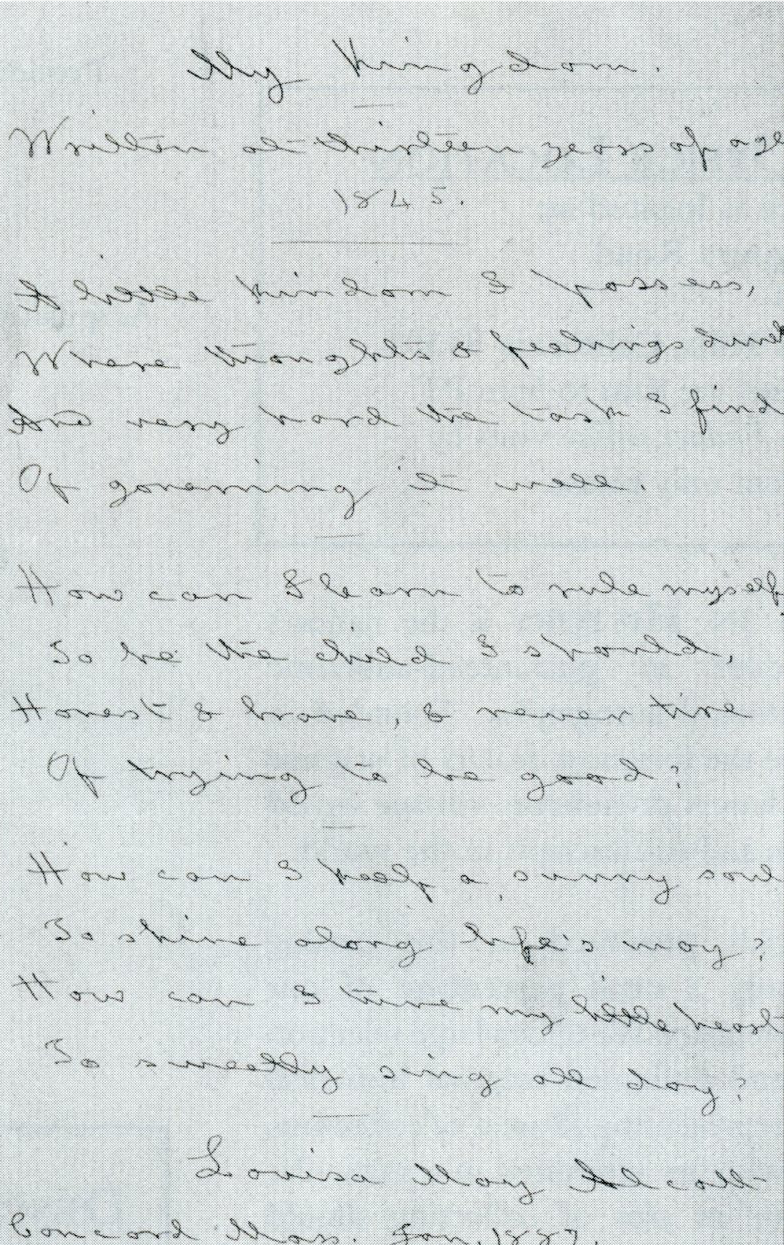 My Kingdom.
Written at thirteen years of age
1845.
A little kindom I possess,
Where thoughts & feelings dwell
And very hard the task I find
Of governing it well.
How can I learn to rule myself
To be the child I should,
Honest & brave, & never tire
Of trying to be good?
How can I keep a sunny soul
To shine along life's way?
How can I tune my little heart
To sweetly sing all day?
Louisa May Alcott
Concord Mass. Jan. 1887.